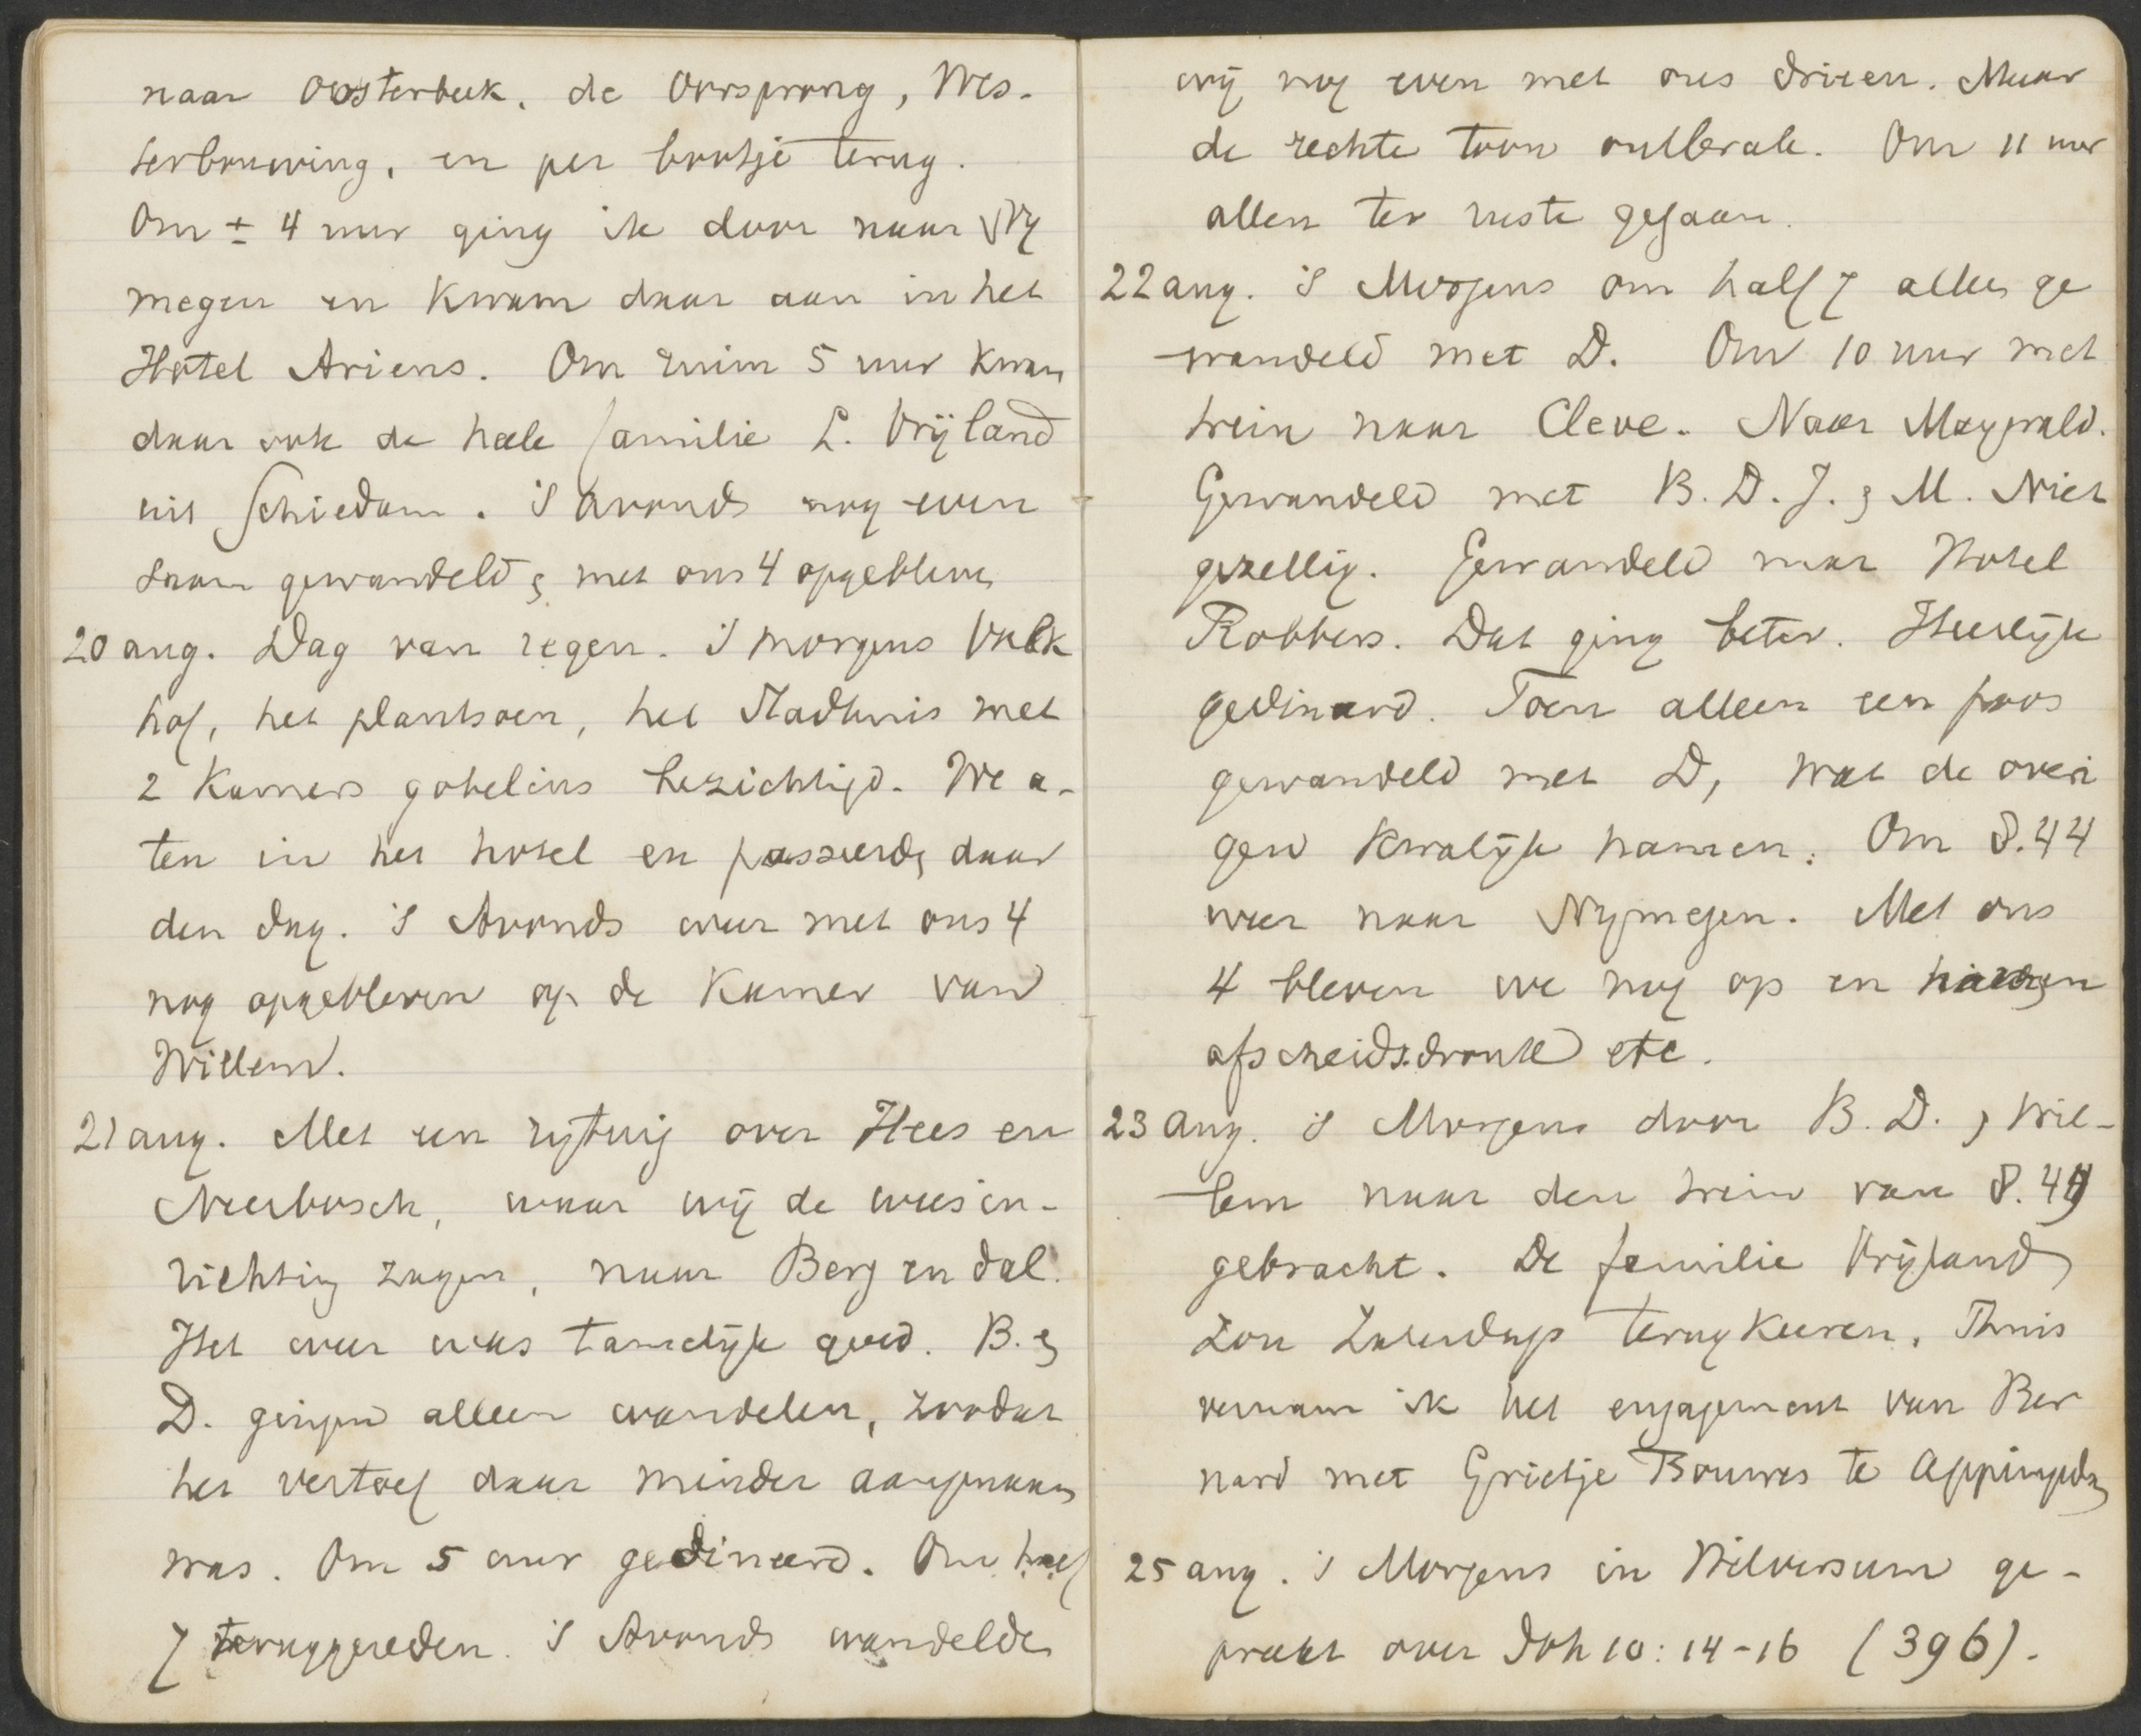 naar Oosterbeek, de Oorsprong, Wes-
terbouwing, en per bootje terug.
Om ± 4 uur ging ik door naar Ny
megen en kwam daar aan in het
Hotel Ariens. Om ruim 5 uur kwam
daar ook de heele familie L. Vrijland
uit Schiedam. 's Avonds nog even
saam gewandeld & met ons 4 opgebleven
20 aug. Dag van regen. 's morgens Valk
hof, het plantsoen, het Stadhuis met
2 kamers gobelins bezichtigd. We a-
ten in het hotel en passeerden daar
den dag. 's Avonds weer met ons 4
nog opgebleven op de kamer van
Willem.
21 aug. Met een rytuig over Hees en
Neerbosch, waar wij de weesin-
richting zagen, naar Berg en dal.
Het weer was tamelijk goed. B. &
D. gingen alleen wandelen, zoodat
het vertoef daar minder aangenaam
was. Om 5 uur gedineerd. Om half
7 teruggereden. 's Avonds wandelden
wij nog even met ons drieen. Maar
de rechte toon ontbrak. Om 11 uur
allen ter ruste gegaan.
22 aug. 's Morgens om half 7 alleen ge
wandeld met D. Om 10 uur met
trein naar Cleve. Naar Maywald.
Gewandeld met B. D. J. & M. Niet
gezellig. Gewandeld naar Hotel
Robbers. Dat ging beter. Heerlijk
gedineerd. Toen alleen een poos
gewandeld met D, wat de overi
gen kwalijk namen. Om 8.44
weer naar Nymegen. Met ons
4 bleven we nog op en
afscheidsdronk etc.
23 Aug. 's Morgens door B. D. & Wil-
lem naar den trein van 8.49
gebracht. De familie Vrijland
zou Zaterdags terugkeeren. Thuis
vernam ik het engagement van Ber
nard met Grietje Bouwes te Appingedam
25 aug. 's Morgens in Hilversum ge-
preekt over Joh 10: 14-16 (396).